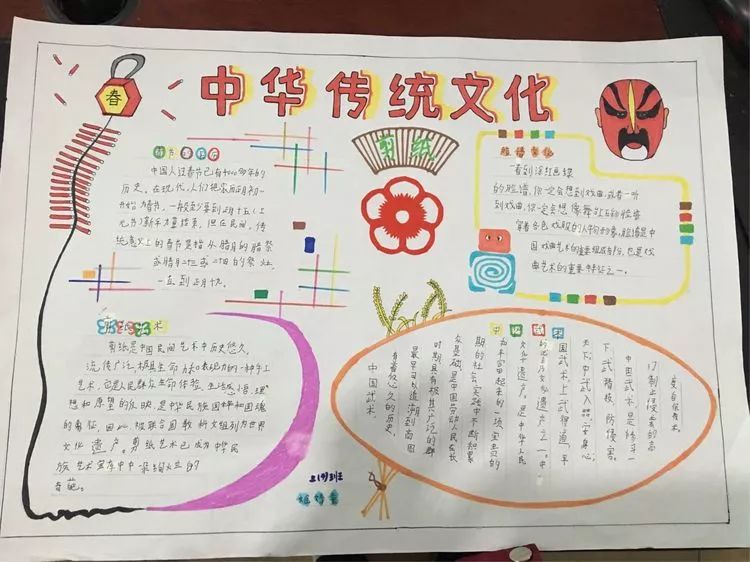 中华传统文化
春
春节
中国人过春节已有4000多年的
历史。在现代,人们把农历正月初一
开始为春节,一般要到正月十五(上
元节)新年才算结束,但在民间,传
统意义上的春节是指从腊月的腊祭
或腊月二十三或二十四的祭灶,
一直到正月十九。
剪纸
脸谱
看到涂红画绿
的脸谱,你一定会想到戏曲,或者一听
到戏曲,你一定会想像舞台上
穿着各色戏服的人物形象,脸谱是中
国戏曲艺术的重要组成部分,也是戏
曲艺术的重要特征之一。
剪纸艺术
剪纸是中国民间艺术中历史悠久、
流传广泛,极具生命力和表现力的一种手工
艺术,它是人民群众生命体验、生活感悟、理
想和愿望的反映,是中华民族国种和国魂
的象征,因此,被联合国教科文组织列为世界
文化遗产。剪纸艺术已成为中华民
族艺术宝库中
奇葩。
中国武术
度自保技术。
以制止侵袭的高
中国武术是修身
下武替技,防侵害。
天下,中武入器安身心,
国武术,上武得道,平
的非物文化遗产之一。中
文化遗产,是中华人民
为丰富起来的一项宝贵的
期的社会实践中不断积累
众基础,是中国劳动人民在长
时期,具有极其广泛的群
最早可以追溯到商周
有着悠久的历史,
中国武术,
班